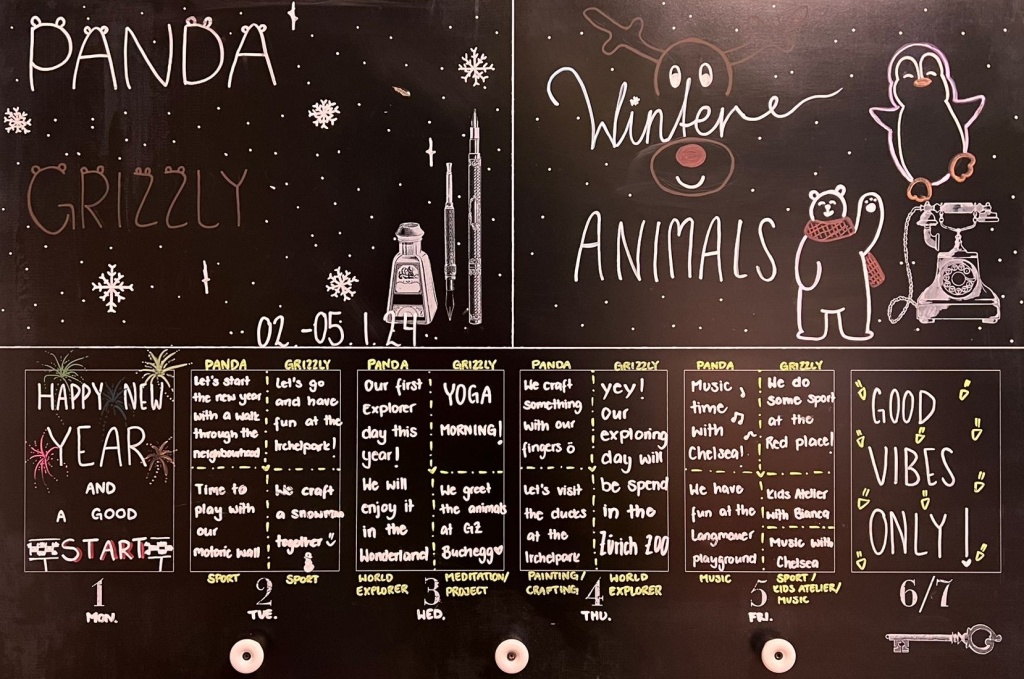 PANDA
GRIZZLY
02.-05.1.24
Winterne
ANIMALS
HAPPY NEW
YEAR
AND
A GOOD
START
1
MON.
PANDA
Let's start
the new year
with a walk
through the
neighbourhood
Time to
play with
our
motoric wall
SPORT
GRIZZLY
Let's go
and have
fun at the
Irchelpark!
We craft
a snowman
together
SPORT
2
TUE.
PANDA
Our first
Explorer
day this
year!
We will
enjoy it
in the
Wonderland
WORLD
EXPLORER
GRIZZLY
YOGA
MORNING!
We greet
the animals
at GZ
Buchegg
MEDITATION/
PROJECT
3
WED.
PANDA
We craft
something
with our
fingers
Let's visit
the ducks
at the
Irchelpark
PAINTING/
CRAFTING
GRIZZLY
yey!
Our
exploring
day will
be spend
in the
Zürich ZOO
WORLD
EXPLORER
4
THU.
PANDA
Music
time
with
Chelsea!
We have
fun at the
Langmauer
playground
MUSIC
GRIZZLY
We do
some sport
at the
Red place!
Kids Atelier
with Bianca
Music with
Chelsea
SPORT/
KIDS ATELIER/
MUSIC
5
FRI.
GOOD
VIBES
ONLY!
6/7